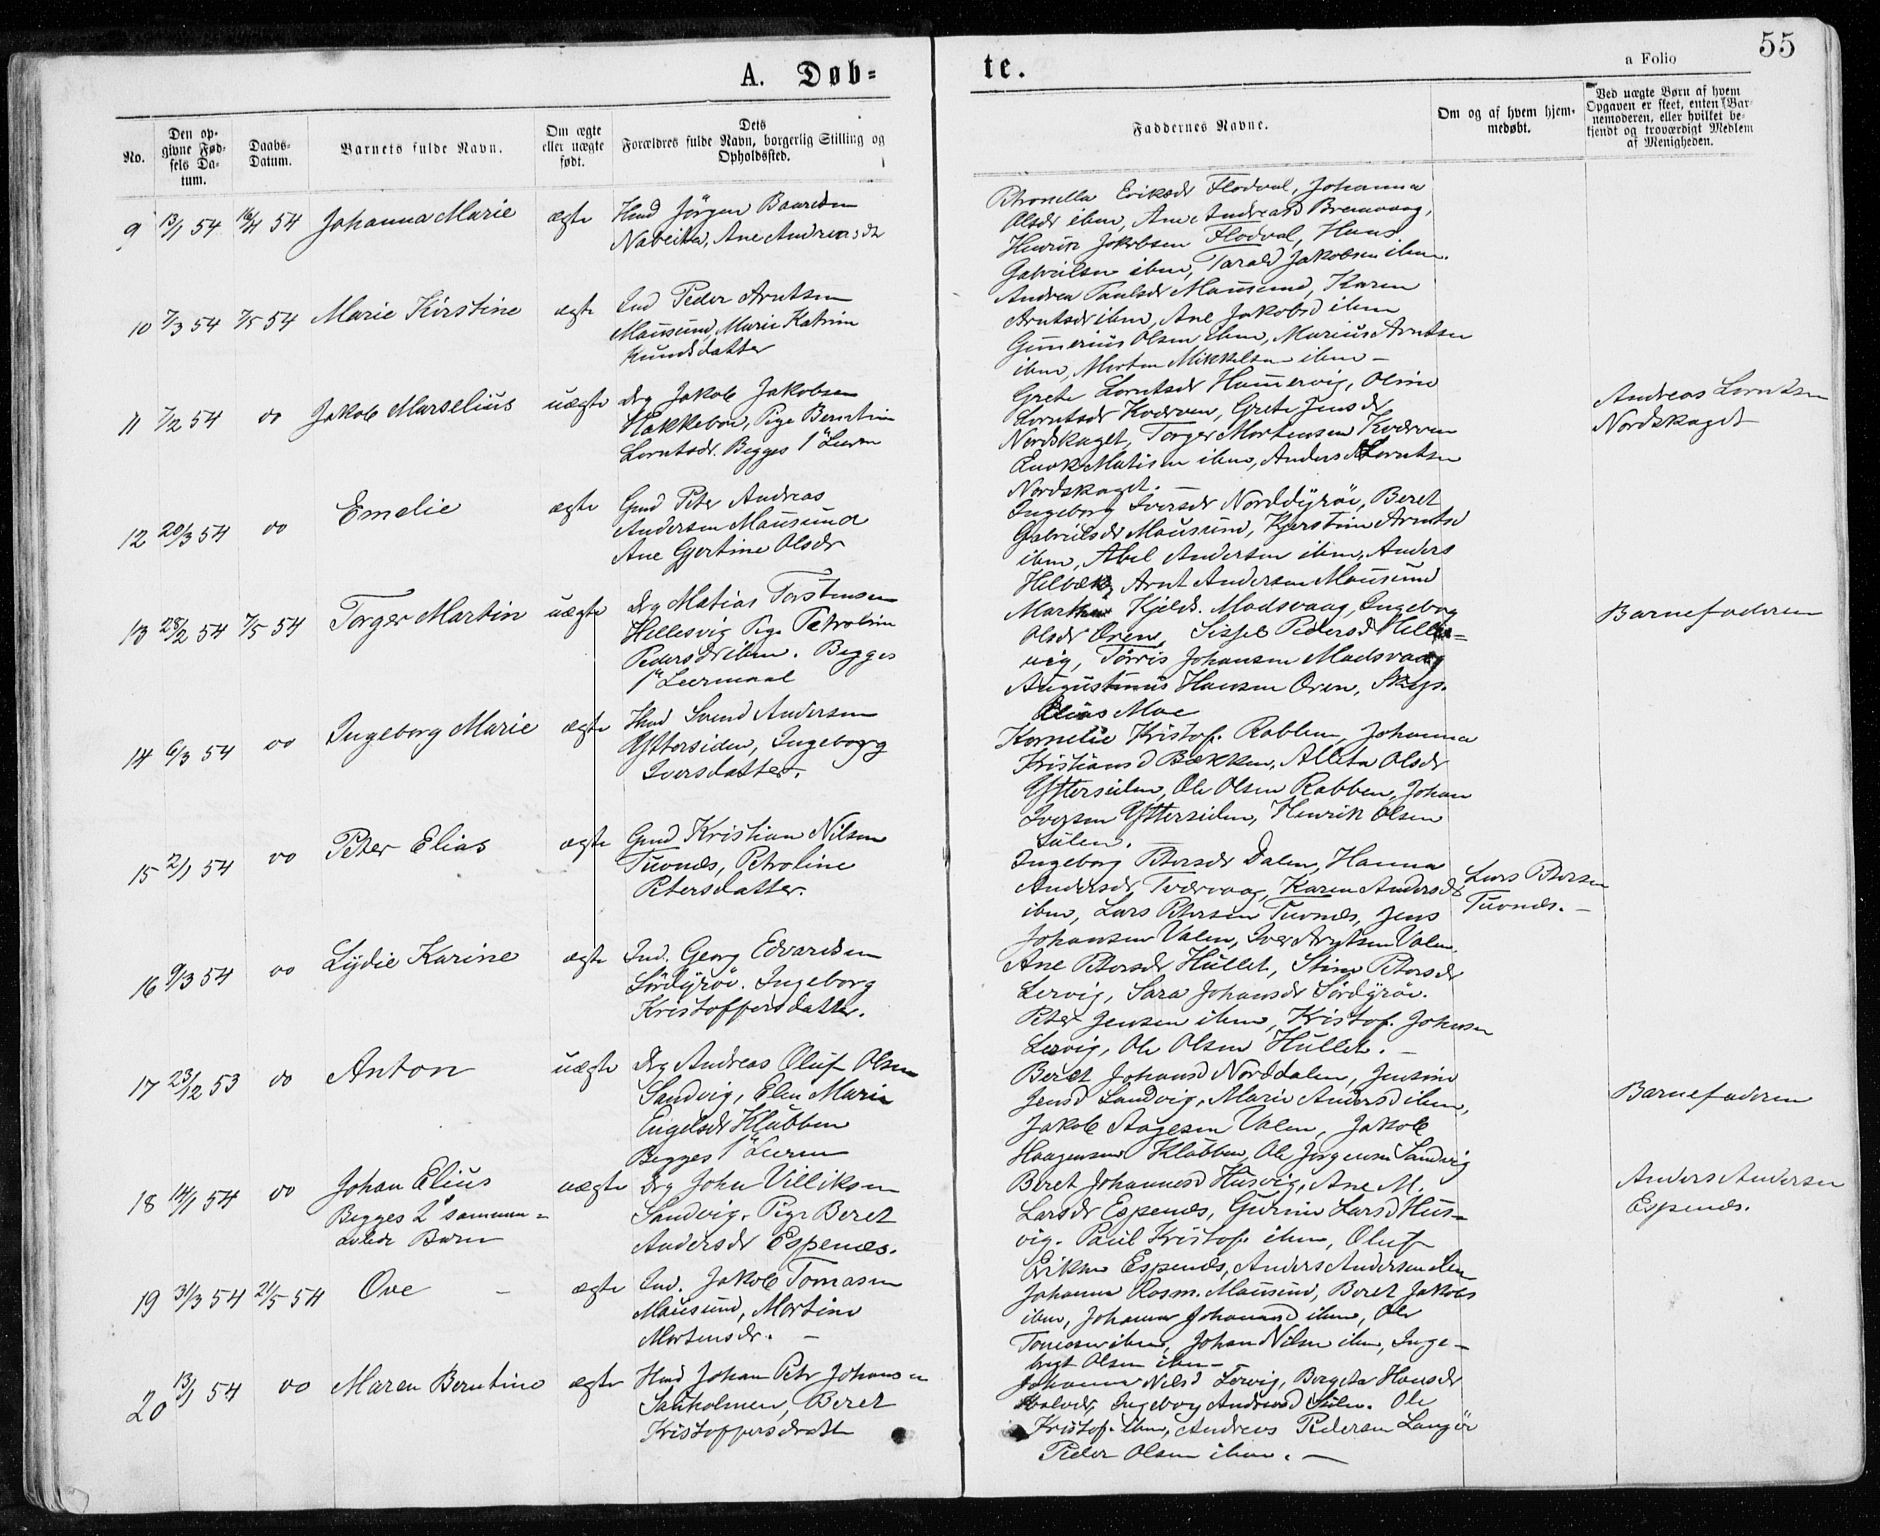 55
A. Døb=
te.
a Folio
No.
Den op-
givne Fød-
sels Da-
tum.
Daabs-
Datum.
Barnets fulde Navn.
Om ægte
eller uægte
født.
Dets
Forældres fulde Navn, borgerlig Stilling og
Opholdssted.
Faddernes Navne.
Om og af hvem hjem-
medøbt.
Ved uægte Børn af hvem
Opgaven er skeet, enten Bar-
nemoderen, eller hvilket be-
kjendt og troværdigt Medlem
af Menigheden.
9 13/1 54 16/4 54 Johanna Marie ægte Hmd Jörgen Baardsen
Nabeita, Ane Andreasdr
Petronella Eriksdr Flodval, Johanna
Olsdr ibm, Ane Andreasd Bremvaag,
Henrik Jakobsen Flodval, Hans
Gabrielsen ibm, Tarald Jakobsen ibm.
10 7/3 54 7/5 54 Marie Kirstine ægte Ind Peder Arntsen
Mausund, Marie Katrine
Knudsdatter
Andrea Paulsdr Mausund, Karen
Arntsdr ibm, Ane Jakobsd ibm
Gunerius Olsen ibm, Marius Arntsen
ibm, Morten Mikkelsen ibm –
11 7/2 54 do Jakob Marselius uægte Drg Jakob Jakobsen
Hakkeboe, Pige Berntine
Lorntsdr. Begges 1ste Leierm
Grete Lorntsdr Hamervig, Oline
Lorntsdr Kverven, Grete Jensdr
Nordskaget, Torger Mortensen Kverven
Enok Matisen ibm, Anders Lorntsen
Nordskaget. –
Andreas Lorntsen
Nordskaget
12 20/3 54 do Emelie ægte Gmd Peter Andreas
Andersen Mausund
Ane Gjertine Olsdr
Ingeborg Iversdr Norddyröi, Beret
Gabrielsdr Mausund, Kjerstine Arntsd
ibm, Abel Andersen ibm, Anders
Helbæk, Arnt Andersen Mausund
13 28/2 54 7/5 54 Torger Martin uægte Drg Matias Torstensen
Hellesvig Pige Petroline
Pedersdr ibm. Begges
1ste Leiermaal
Marken Kjelds. Madsvaag, Ingebog
Olsdr Oren, Sissel Pedersd Helles-
vig, Törris Johansen Madsvaag
Augustinus Hansen Oren, Skys.
Elias Moe
Barnefaderen
14 6/3 54 do Ingeborg Marie ægte Hmd Svend Andersen
Yttersiden, Ingeborg
Iversdatter.
Kornelie Kristof. Rabben, Johanna
Kristiansd Bækken, Alleta Olsdr
Yttersiden, Ole Olsen Rabben, Johan
Iversen Yttersiden, Henrik Olsen
Sulen. –
15 2/1 54 do Peter Elias ægte Gmd Kristian Nilsen
Tuvnæs, Petroline
Petersdatter.
Ingeborg Petersdr Dalen, Hanna
Andersdr Tværvaag, Karen Andersdr
ibm, Lars Petersen Tuvnæs, Jens
Johansen Valen, Iver Arntsen Valen.
Lars Petersen
Tuvnæs. –
16 9/3 54 do Lydie Karine ægte Ind. Georg Edvardsen
Sördyröi. Ingeborg
Kristoffersdatter.
Ane Petersdr Hullet, Stine Petersdr
Lervig, Sara Johansdr Sördyröi.
Peter Jensen ibm, Kristof. Johnsen
Lervig, Ole Olsen Hullet. –
17 23/12 53 do Anton uægte Drg Andreas Oluf Olsen
Sandvig, Elen Marie
Engelsdr Klubben
Begges 1ste Leierm
Beret Johansd Norddalen, Jensine
Jensd Sandvig, Marie Andersd ibm,
Jakob Aagesen Valen, Jakob
Haagensen Klubben, Ole Jörgensen Sandvig
Barnefaderen
18 14/1 54 do Johan Elius uægte Drg John Villiksen
Begges 2det sammen=
avlede Barn
Sandvig. Pige Beret
Andersdr Espenæs.
Beret Johannesd Husvig, Ane M.
Larsdr Espenæs, Gurine Larsd Hus-
vig. Paul Kristof. ibm, Oluf
Eriksen Espenæs, Anders Andersen ibm
Anders Andersen
Espenæs.
19 31/3 54 21/5 54 Ove – ægte Ind. Jakob Tomasen
Mausund, Martine
Mortensdr. –
Johanna Rasm. Mausund, Beret Jakobs
ibm, Johanna Johannsd ibm, Ole
Tomesen ibm, Johan Nilsen ibm, Inge-
brigt Olsen ibm –
20 13/1 54 do Maren Berntine ægte Hmd Johan Petr Johansen
Sauholmen, Beret
Kristoffersdatter
Johanna Nilsd Lervig, Bergeta Hansdr
Ingeborg Andreasd Sulen. Ole
Kristof. ibm, Andreas Pedersen Langöi
Peder Olsen ibm. –